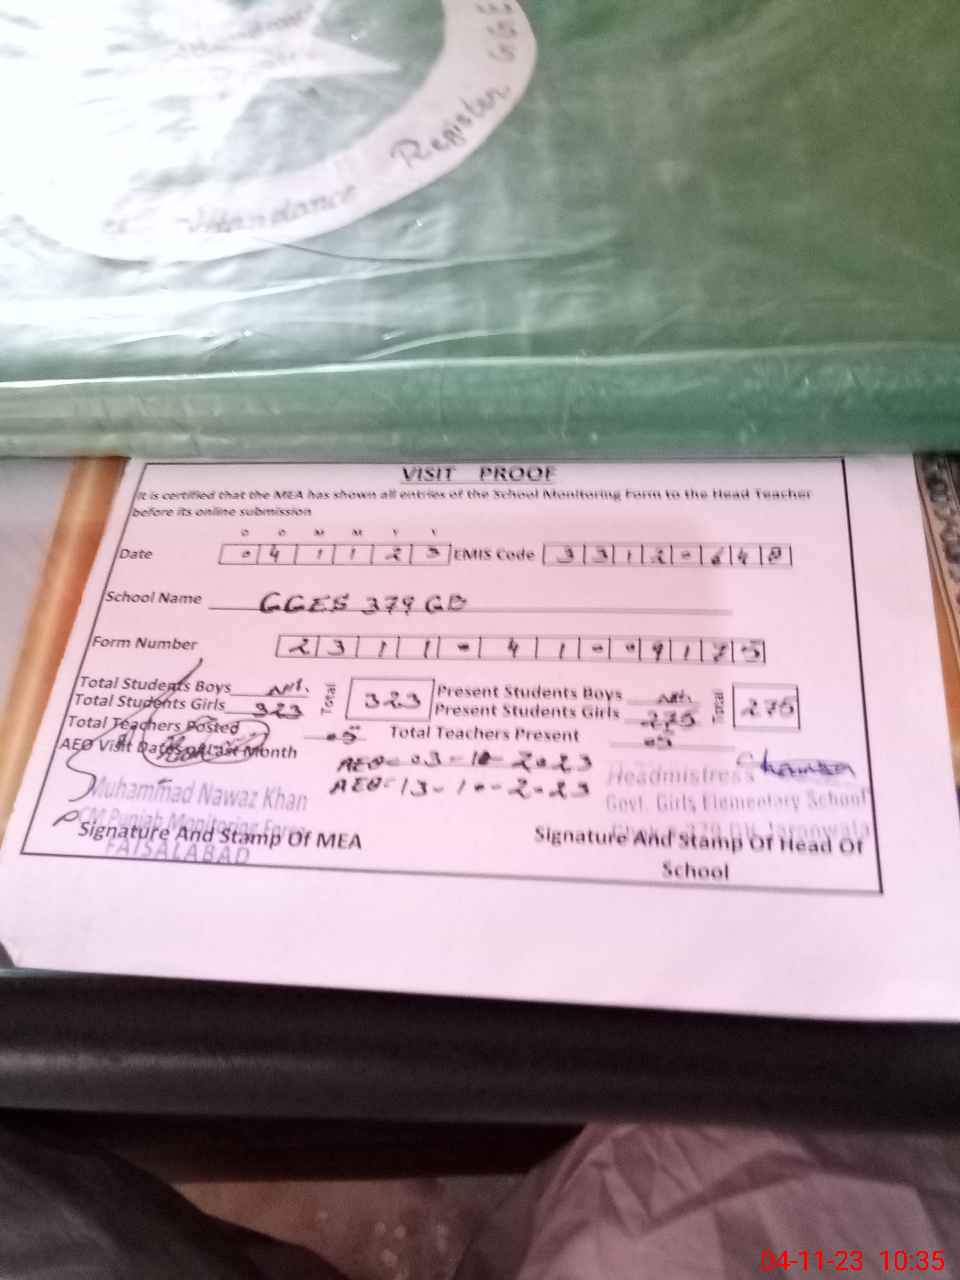 Attendance Register
VISIT PROOF
It is certified that the MEA has shown all entries of the School Monitoring Form to the Head Teacher
before its online submission
D D M M Y Y
Date 0 4 1 1 2 3 EMIS Code 3 3 1 2 0 6 4 8
School Name GGES 379 GB
Form Number 2 3 1 1 0 4 1 0 0 9 1 7 5
Total Students Boys Nil. Total 323 Present Students Boys Nil. Total 275
Total Students Girls 323 Present Students Girls 275
Total Teachers Posted 05 Total Teachers Present 05
AEO Visit Dates of Last Month AEO= 03-10-2023
AEO=13-10-2023
Muhammad Nawaz Khan
CM Punjab Monitoring Force
FAISALABAD
Signature And Stamp Of MEA
Headmistress
Govt. Girls Elementary School
Jaranwala
Signature And Stamp Of Head Of
School
04-11-23 10:35